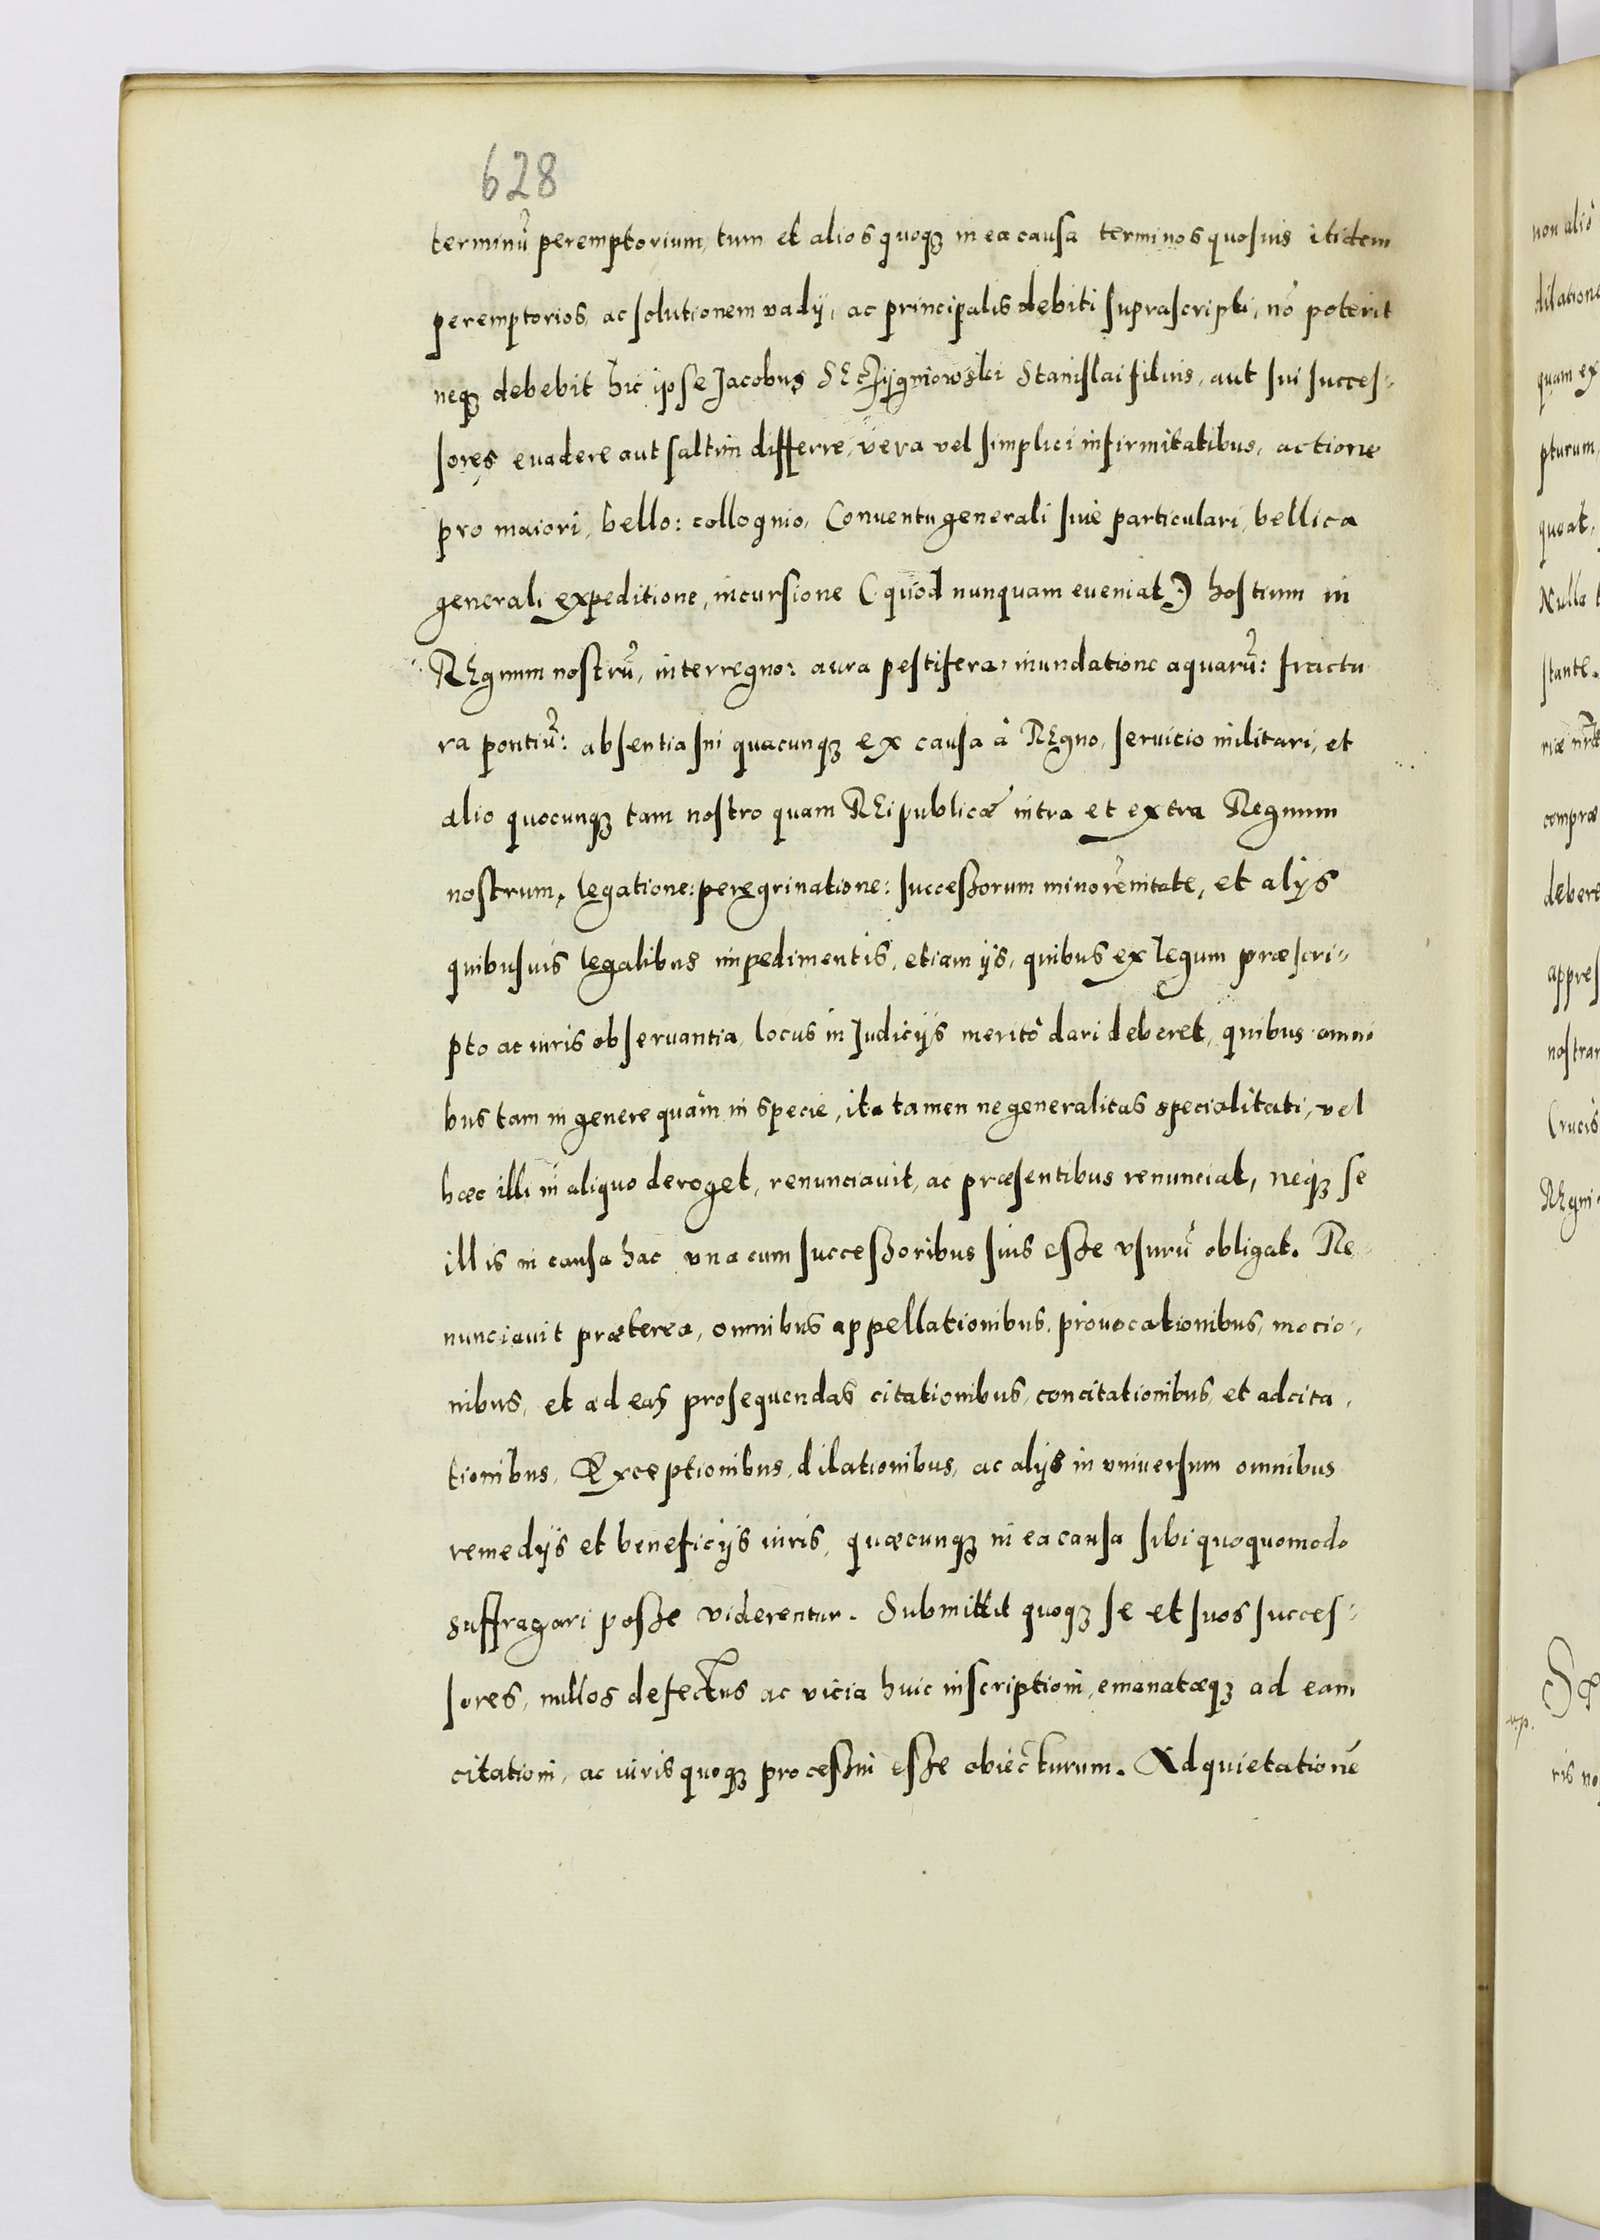 628
terminũ peremptorium, tum et alios quoqꝫ in ea causa terminos quosuis itidem
peremptorios, ac solutionem vadij, ac principalis debiti suprascripti, nõ poterit
neqꝫ debebit hic ipse Jacobus Stanislai filius, aut sui succes-
sores euadere aut saltim differre, vera vel simplici infirmitatibus, actione
pro maiori, bello: colloquio, Conuentu generali siue particulari, bellica
generali expeditione, incursione (quod nunquam eueniat) hostium in
REgnum nostrũ, interregno: aura pestifera, inundatione aquarũ: fractu
ra pontiũ: absentia sui quacunqꝫ ex causa à REgno, seruicio militari, et
alio quocunqꝫ tam nostro quam REipublicæ intra et extra Regnum
nostrum, legatione: peregrinatione: successorum minorẽnitate, et alijs
quibusuis legalibus impedimentis, etiam ijs, quibus ex legum præscri-
pto ac iuris obseruantia, locus in Judicijs meritò dari deberet, quibus omni
bus tam in genere quàm in specie, ita tamen ne generalitas specialitati, vel
hæc illi in aliquo deroget, renunciauit, ac præsentibus renunciat, neqꝫ se
illis in causa hac vna cum successoribus suis esse vsurũ obligat. Re-
nunciauit præterea, omnibus appellationibus, prouocationibus, mocio-
nibus, et ad eas prosequendas citationibus, concitationibus, et adcita-
tionibus, Exceptionibus, dilationibus, ac alijs in vniuersum omnibus
remedijs et beneficijs iuris, quæcunqꝫ in ea causa sibi quoquomodo
suffragari posse viderentur. Submittit quoqꝫ se et suos succes-
sores, nullos defectus ac vicia huic inscriptioni, emanatæqꝫ ad eam
citationi, ac iuris quoqꝫ processui esse obiecturum. Ad quietationẽ
non aliò
dilatione
quam ex
pturum,
queat,
Nulla
stante.
riæ nr̃æ
compræ
debere
appres
nostram
Crucis
REgni
ris no